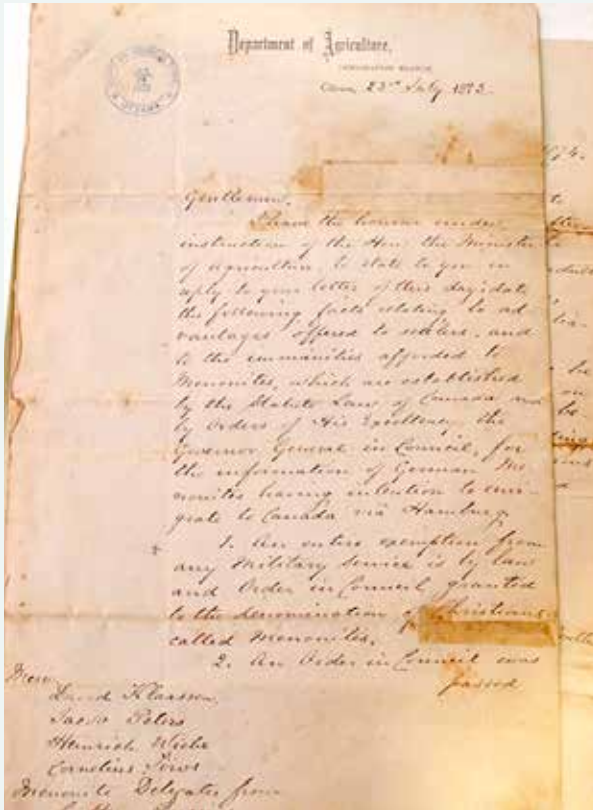 OTTAWA
Department of Agriculture,
IMMIGRATION BRANCH
Ottawa, 23rd July 1873.
Gentlemen,
I have the honour under
instruction of the Hon. the Minister
of Agriculture, to state to you in
reply to your letter of this day's date
the following facts relating to ad-
vantages offered to settlers, and
to the immunities afforded to
Menonites, which are established
by the Statute Law of Canada and
by Orders of His Excellency the
Governor General in Council, for
the information of German Me-
nonites having intention to emi-
grate to Canada via Hamburg.
1. An entire exemption from
any Military Service is by law
and Order in Council granted
to the denomination of Christians
called Menonites.
2. An Order in Council was
passed
Messrs
David Klaassen,
Jacob Peters
Heinrich Wiebe
Cornelius Toews
Menonite Delegates from